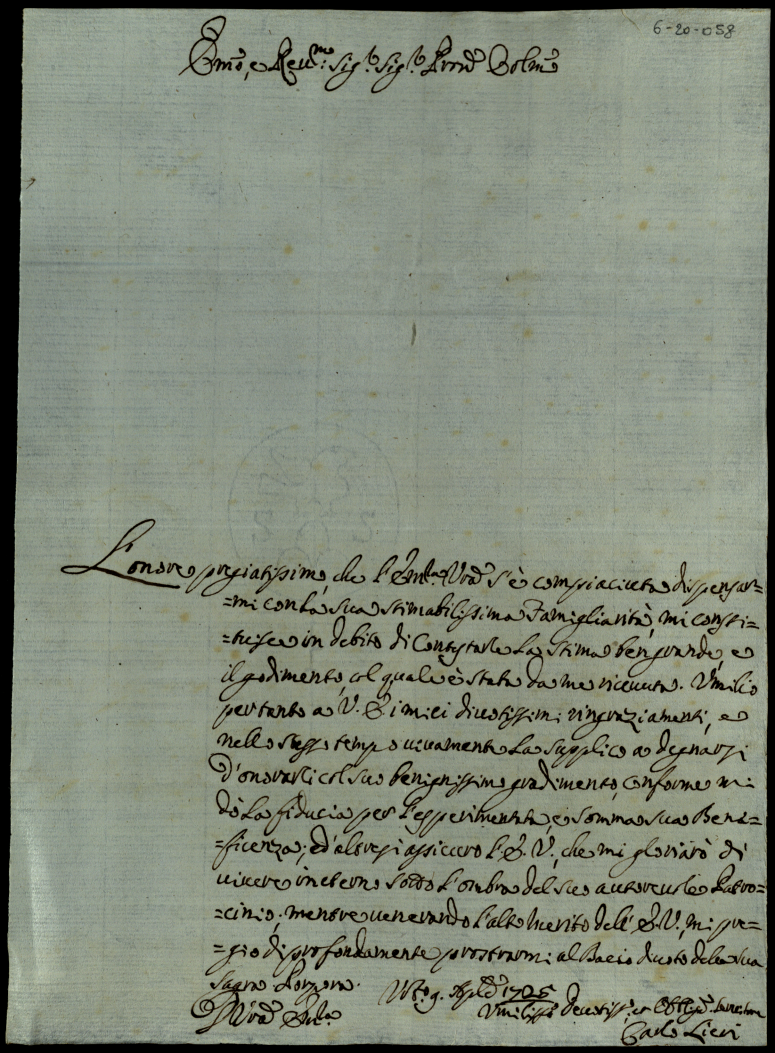 6-20-058
Emo, e Reu.mo Sig.r Sig.r Pron Colmo
L'onore pregiatissimo, che l'Em.a Vra s'è compiaciuta dispensar=
=mi con la sua stimabilissima Famigliarità, mi consti=
=tuisce in debito di Contestarle la stima ben grande, e
il godimento, col quale è stata da me riceuuta. Vmilio
pertanto a V. E. i miei diuotissimi ringraziamenti, e
nello stesso tempo uiuamente la supplico a degnarsi
d'onorarli col suo benignissimo gradimento, conforme mi
dà la fiducia per l'esperimentata, e somma sua Bene=
=ficenza; ed altresi assicuro l'E. V., che mi gloriarò di
uiuere in eterno sotto l'ombra del suo autoreuole Patro=
=cinio; mentre uenerando l'alto merito dell'E. V., mi pre=
=gio di profondamente prostrarmi al Bacio diuoto della sua
Sagra Porpora.
9. Aple 1725
Vra Em.a
Vmilissmo Deuotiss.o et Obblig.
Carlo Lieri